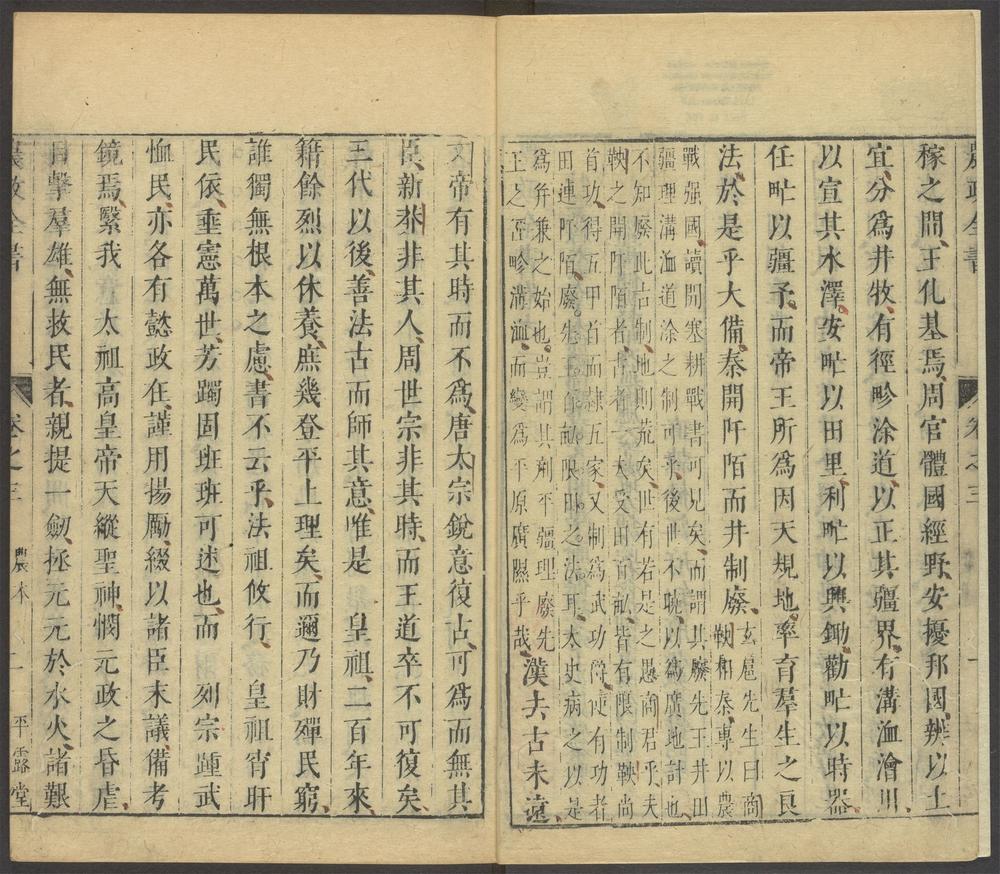 農政全書
卷之三
一
稼之間、王化基焉、周官體國經野、安擾邦國、辨以土
宜、分爲井牧、有徑畛涂道、以正其疆界、有溝洫澮川、
以宣其水澤。安甿以田里、利甿以興鋤、勸甿以時器、
任甿以疆予、而帝王所爲因天規地、率育羣生之良
法、於是乎大備、秦開阡陌而井制廢、
玄扈先生曰商
鞅相秦、專以農
戰强國、讀開塞耕戰書可見矣、而謂其廢先王井田
疆理溝洫道涂之制可乎、後世不晄、以爲廣地計也、
不知廢此古制、地則荒矣、世有若是之愚商君乎、夫
鞅之開阡陌者、古者一夫受田百畝、皆有限制、鞅尚
首功、得五甲首而隷五家、又制爲武功爵、使有功者
田連阡陌、廢先王百畝限田之法耳、太史病之、以是
爲弁兼之始也。豈謂其剗平疆理、廢先
王之徑畛溝洫、而變爲平原廣隰乎哉、
漢去古未遠、
文帝有其時而不爲、唐太宗銳意復古、可爲而無其
臣、新莽非其人、周世宗非其時、而王道卒不可復矣、
三代以後、善法古而師其意、唯是　皇祖、二百年來、
籍餘烈以休養、庶幾登平上理矣、而邇乃財殫民窮、
誰獨無根本之慮、書不云乎、法祖攸行、　皇祖宵旰
民依、垂憲萬世、芳躅固班班可述也、而　列宗踵武
恤民、亦各有懿政在、謹用揚厲、綴以諸臣末議備考
鏡焉、繄我　太祖高皇帝天縱聖神、憫元政之昏虐、
目擊羣雄、無救民者、親提一劒、拯元元於水火、諸艱
農政全書
卷之三
農本
二
平露堂